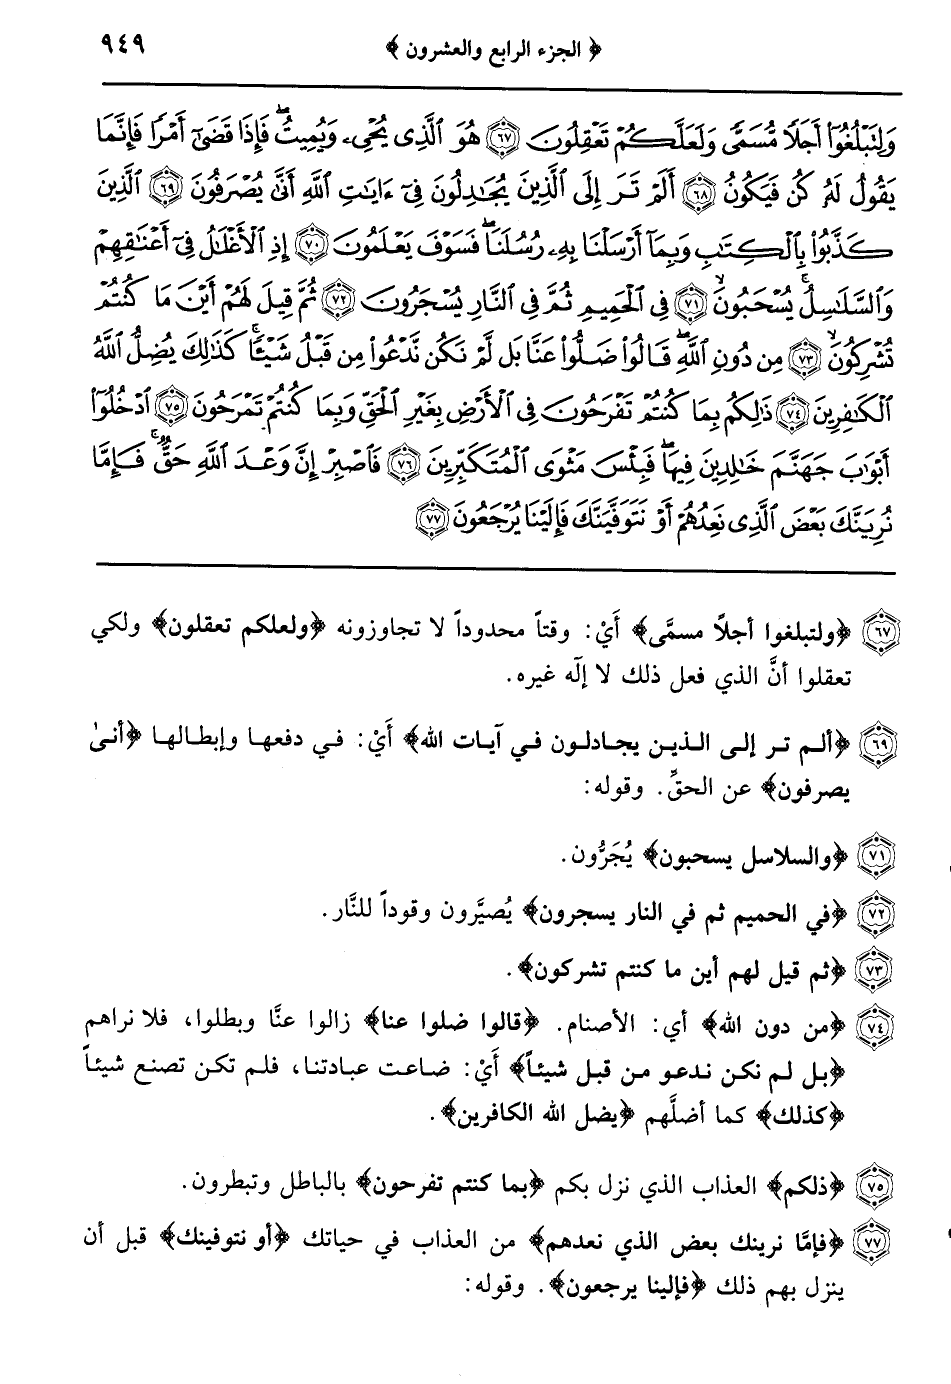 ﴿ الجزء الرابع والعشرون ﴾ ٩٤٩
وَلِتَبْلُغُوٓا۟ أَجَلًا مُّسَمًّى وَلَعَلَّكُمْ تَعْقِلُونَ ٦٧ هُوَ ٱلَّذِى يُحْىِۦ وَيُمِيتُ ۖ فَإِذَا قَضَىٰٓ أَمْرًا فَإِنَّمَا
يَقُولُ لَهُۥ كُن فَيَكُونُ ٦٨ أَلَمْ تَرَ إِلَى ٱلَّذِينَ يُجَٰدِلُونَ فِىٓ ءَايَٰتِ ٱللَّهِ أَنَّىٰ يُصْرَفُونَ ٦٩ ٱلَّذِينَ
كَذَّبُوا۟ بِٱلْكِتَٰبِ وَبِمَآ أَرْسَلْنَا بِهِۦ رُسُلَنَا ۖ فَسَوْفَ يَعْلَمُونَ ٧٠ إِذِ ٱلْأَغْلَٰلُ فِىٓ أَعْنَٰقِهِمْ
وَٱلسَّلَٰسِلُ يُسْحَبُونَ ٧١ فِى ٱلْحَمِيمِ ثُمَّ فِى ٱلنَّارِ يُسْجَرُونَ ٧٢ ثُمَّ قِيلَ لَهُمْ أَيْنَ مَا كُنتُمْ
تُشْرِكُونَ ٧٣ مِن دُونِ ٱللَّهِ ۖ قَالُوا۟ ضَلُّوا۟ عَنَّا بَل لَّمْ نَكُن نَّدْعُوا۟ مِن قَبْلُ شَيْـًٔا ۚ كَذَٰلِكَ يُضِلُّ ٱللَّهُ
ٱلْكَٰفِرِينَ ٧٤ ذَٰلِكُم بِمَا كُنتُمْ تَفْرَحُونَ فِى ٱلْأَرْضِ بِغَيْرِ ٱلْحَقِّ وَبِمَا كُنتُمْ تَمْرَحُونَ ٧٥ ٱدْخُلُوٓا۟
أَبْوَٰبَ جَهَنَّمَ خَٰلِدِينَ فِيهَا ۖ فَبِئْسَ مَثْوَى ٱلْمُتَكَبِّرِينَ ٧٦ فَٱصْبِرْ إِنَّ وَعْدَ ٱللَّهِ حَقٌّ ۚ فَإِمَّا
نُرِيَنَّكَ بَعْضَ ٱلَّذِى نَعِدُهُمْ أَوْ نَتَوَفَّيَنَّكَ فَإِلَيْنَا يُرْجَعُونَ ٧٧
٦٧ ﴿ولتبلغوا أجلاً مسمَّى﴾ أَيْ: وقتاً محدوداً لا تجاوزونه ﴿ولعلكم تعقلون﴾ ولكي
تعقلوا أنَّ الذي فعل ذلك لا إلٓه غيره.
٦٩ ﴿ألم تر إلى الذين يجادلون في آيات الله﴾ أَيْ: في دفعها وإبطالها ﴿أنىٰ
يصرفون﴾ عن الحقِّ. وقوله:
٧١ ﴿والسلاسل يسحبون﴾ يُجَرُّون.
٧٢ ﴿في الحميم ثم في النار يسجرون﴾ يُصيَّرون وقوداً للنَّار.
٧٣ ﴿ثم قيل لهم أين ما كنتم تشركون﴾.
٧٤ ﴿من دون الله﴾ أي: الأصنام. ﴿قالوا ضلوا عنا﴾ زالوا عنَّا وبطلوا، فلا نراهم
﴿بل لم نكن ندعو من قبل شيئاً﴾ أَيْ: ضاعت عبادتنا، فلم تكن تصنع شيئاً
﴿كذلك﴾ كما أضلَّهم ﴿يضل الله الكافرين﴾.
٧٥ ﴿ذلكم﴾ العذاب الذي نزل بكم ﴿بما كنتم تفرحون﴾ بالباطل وتبطرون.
٧٧ ﴿فإمَّا نرينك بعض الذي نعدهم﴾ من العذاب في حياتك ﴿أو نتوفينك﴾ قبل أن
ينزل بهم ذلك ﴿فإلينا يرجعون﴾. وقوله: